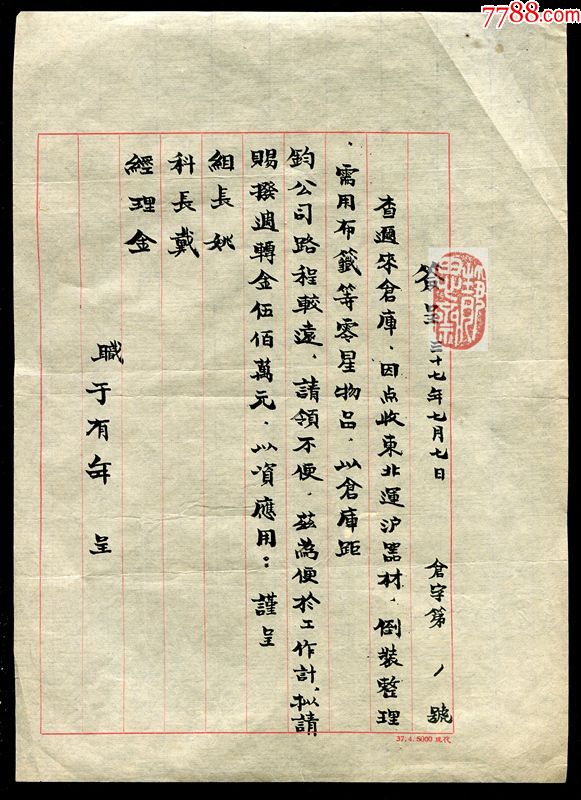 7788.com
簽呈 三十七年七月七日 倉字第 1 號
查邇來倉庫、因点收東北運沪器材、倒裝整理
、需用布籤等零星物品、以倉庫距
鈞公司路程較遠、請領不便、茲為便於工作計、擬請
賜撥週轉金伍佰萬元、以資應用：謹呈
組長姚
科長戴
經理金
職于有年 呈
37.4.5000 現代